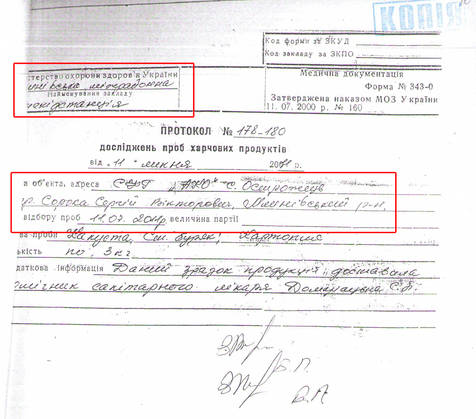 КОПІЯ
Код форми за ЗКУД
Код закладу за ЗКПО
терство охорони здоров'я України
міжрайонна
Найменування закладу
Медична документація
Форма № 343-0
Затверджена наказом МОЗ України
11.07.2000 рм. № 160
ПРОТОКОЛ № 178-180
досліджень проб харчових продуктів
від „11" липня 2011 р.
а об'єкта, адреса с.
Сорока Сергій Вікторович, р-н
відбору проб 11.07.2011р величина партії
ва проби Капуста, Ст. буряк, Картопля
ькість по 3кг
даткова інформація Даний зразок продукції доставила
мічник санітарного лікаря С.В.
В.П.
В.А